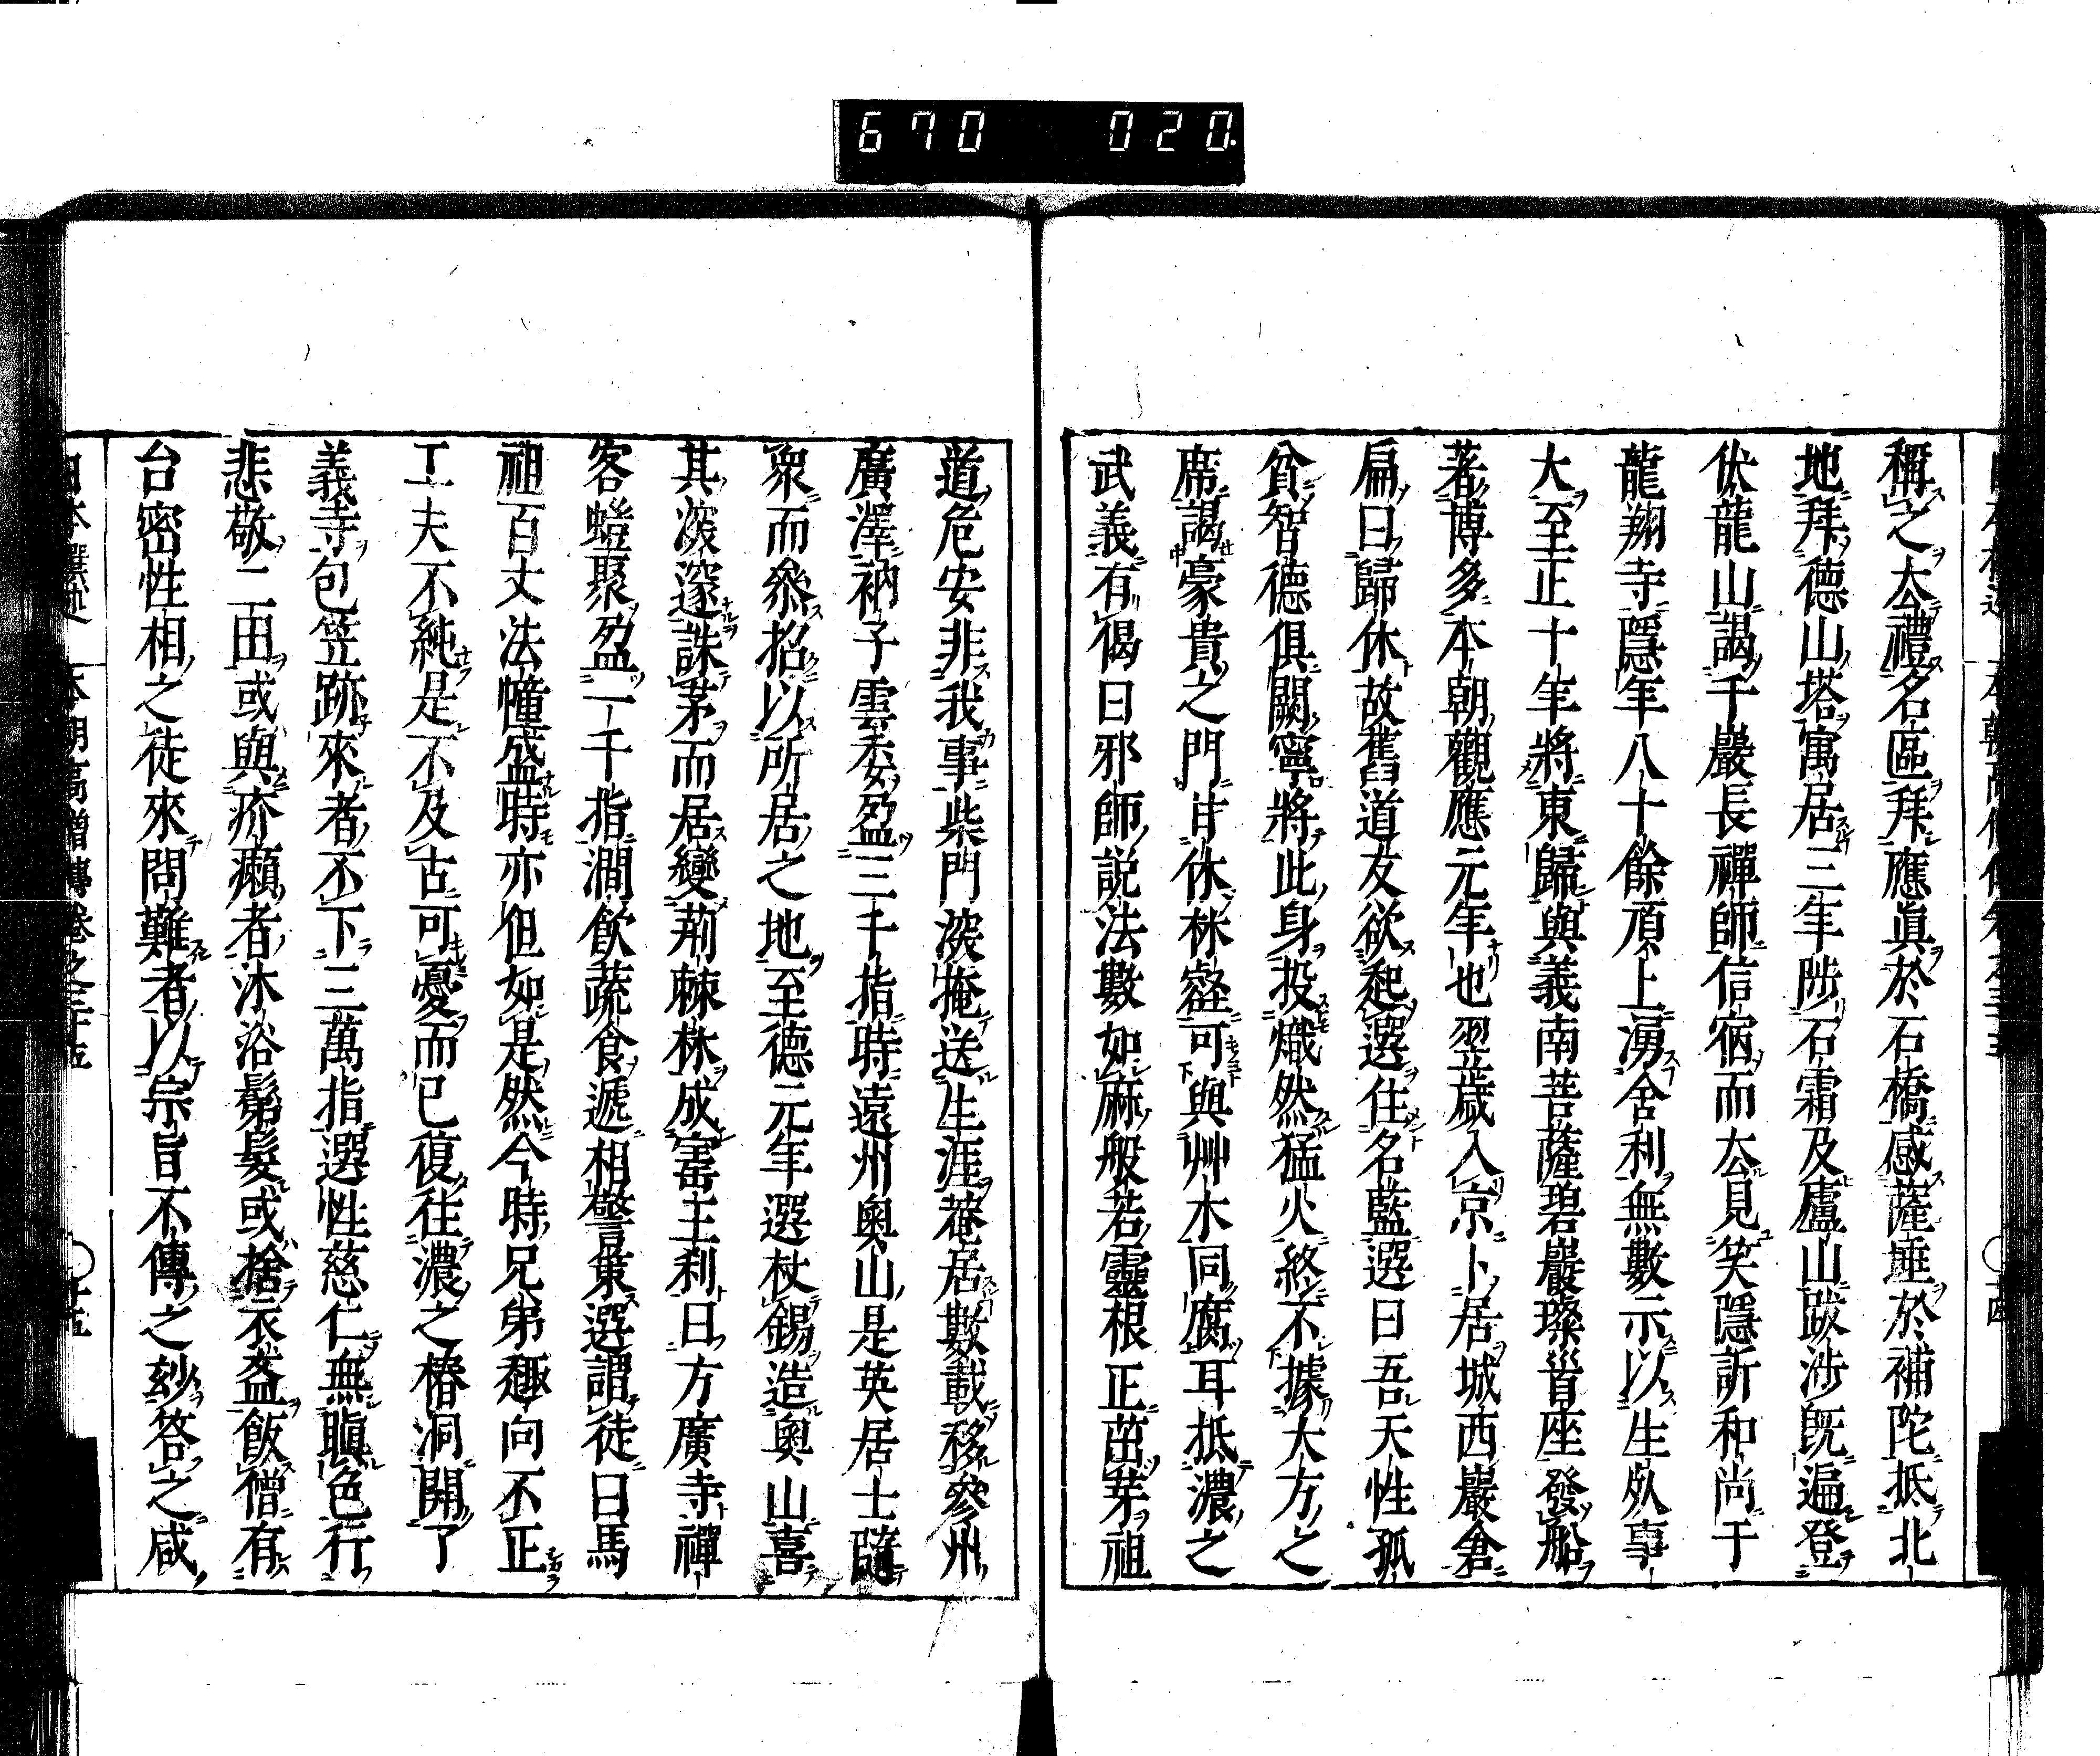 670 020.
稱之去禮名區拜應眞於石橋感薩埵於補陀抵北
地拜德山塔寓居三年陟石霜及廬山跋涉既遍登
伏龍山謁千巖長禪師信宿而去見笑隱訢和尚于
龍翔寺隱年八十餘頂上湧舍利無數示以生死事
大至正十年將東歸與義南菩薩碧巖璨首座發船
著博多本朝觀應元年也翌歲入京卜居城西巖倉
扁曰歸休故舊道友欲起選住名藍選曰吾天性孤
貧智德俱闕寧將此身投熾然猛火終不據大方之
席謁豪貴之門甘休林壑可與艸木同腐耳抵濃之
武義有偈曰邪師説法數如麻般若靈根正茁芽祖
道危安非我事柴門深掩送生涯菴居數載移參州
廣澤衲子雲委盈三千指時遠州奧山是英居士隨
衆而叅招以所居之地至德元年選杖錫造奧山喜
其深邃誅茅而居變荊棘林成寶王刹曰方廣寺禪
客螘聚盈一千指澗飲蔬食遞相警策選謂徒曰馬
祖百丈法幢盛時亦但如是然今時兄弟趣向不正
工夫不純是不及古可憂而已復往濃之椿洞開了
義寺包笠跡來者不下三萬指選性慈仁無瞋色行
悲敬二田或與疥癩者沐浴鬀髮或捨衣盋飯僧有
台密性相之徒來問難者以宗旨不傳之玅答之咸
本朝高僧傳卷之三十五